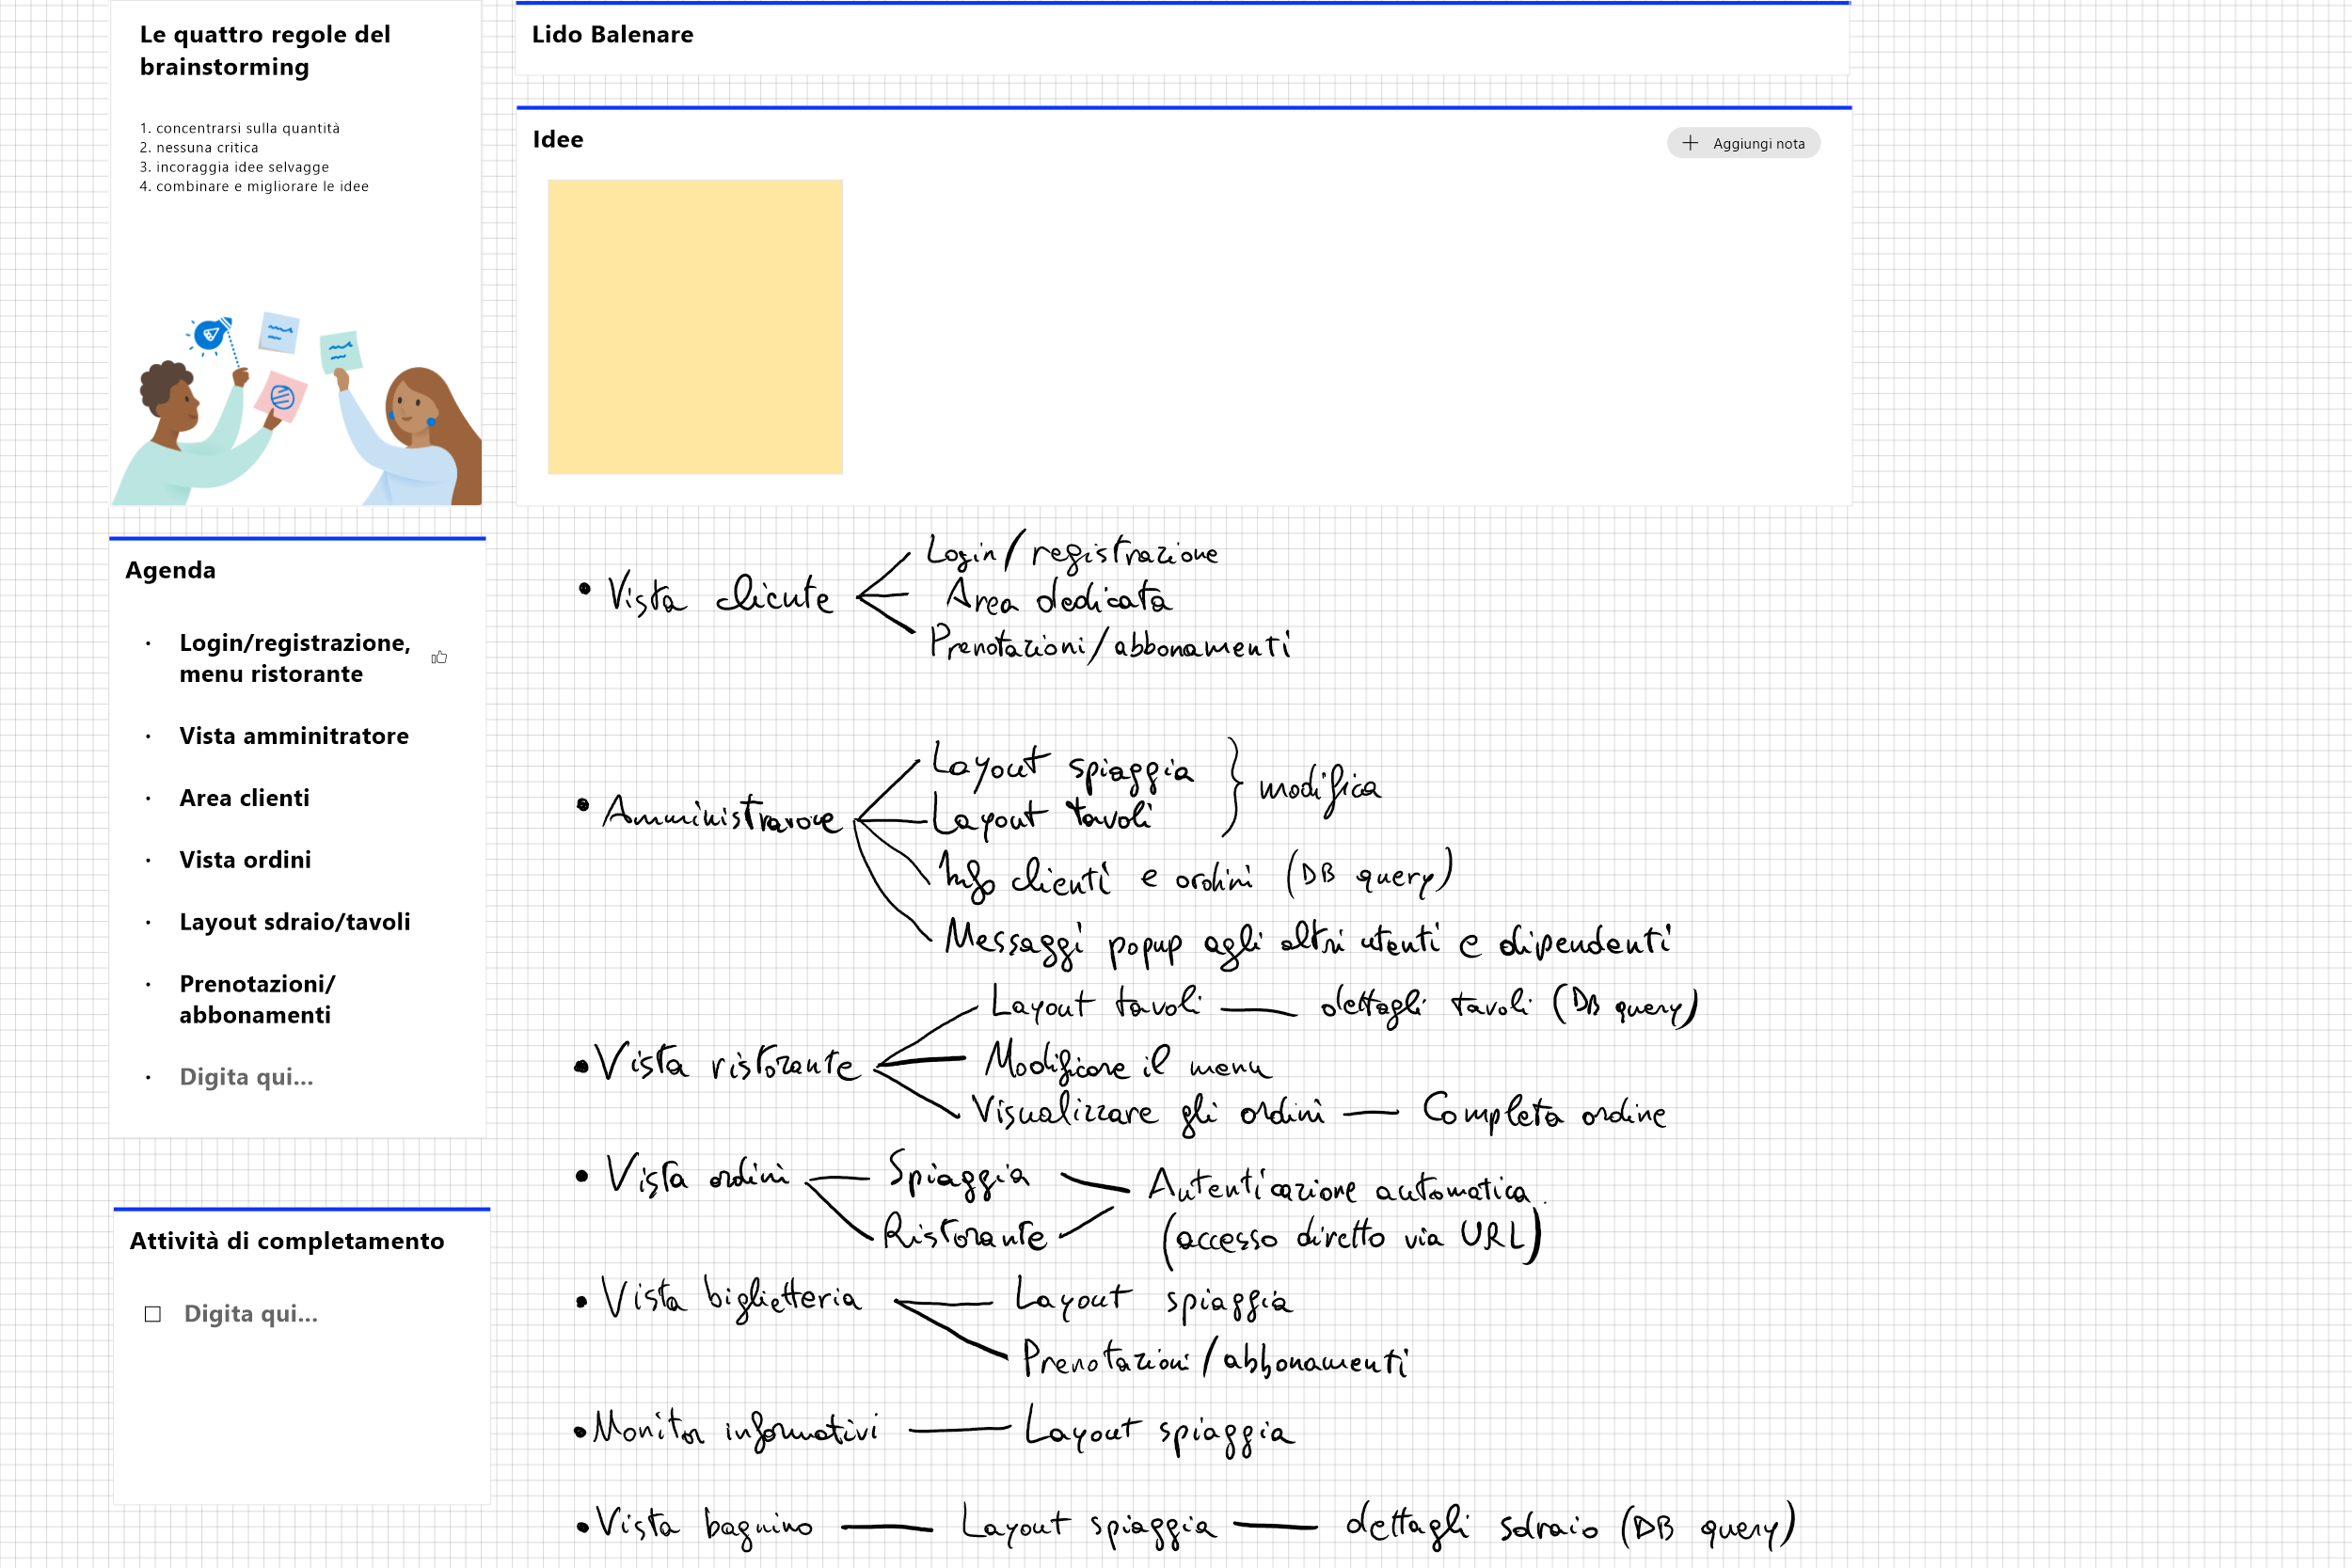 Le quattro regole del
brainstorming
1. concentrarsi sulla quantità
2. nessuna critica
3. incoraggia idee selvagge
4. combinare e migliorare le idee
Lido Balenare
Idee
Aggiungi nota
Agenda
· Login/registrazione,
menu ristorante
· Vista amminitratore
· Area clienti
· Vista ordini
· Layout sdraio/tavoli
· Prenotazioni/
abbonamenti
· Digita qui...
Attività di completamento
Digita qui...
• Vista cliente
Login/registrazione
Area dedicata
Prenotazioni/abbonamenti
• Amministratore
Layout spiaggia
Layout tavoli
} modifica
Info clienti e ordini (DB query)
Messaggi popup agli altri utenti e dipendenti
• Vista ristorante
Layout tavoli — dettagli tavoli (DB query)
Modificare il menu
Visualizzare gli ordini — Completa ordine
• Vista ordini
Spiaggia
Ristorante
Autenticazione automatica
(accesso diretto via URL)
• Vista biglietteria
Layout spiaggia
Prenotazioni/abbonamenti
• Monitor informativi — Layout spiaggia
• Vista bagnino — Layout spiaggia — dettagli sdraio (DB query)